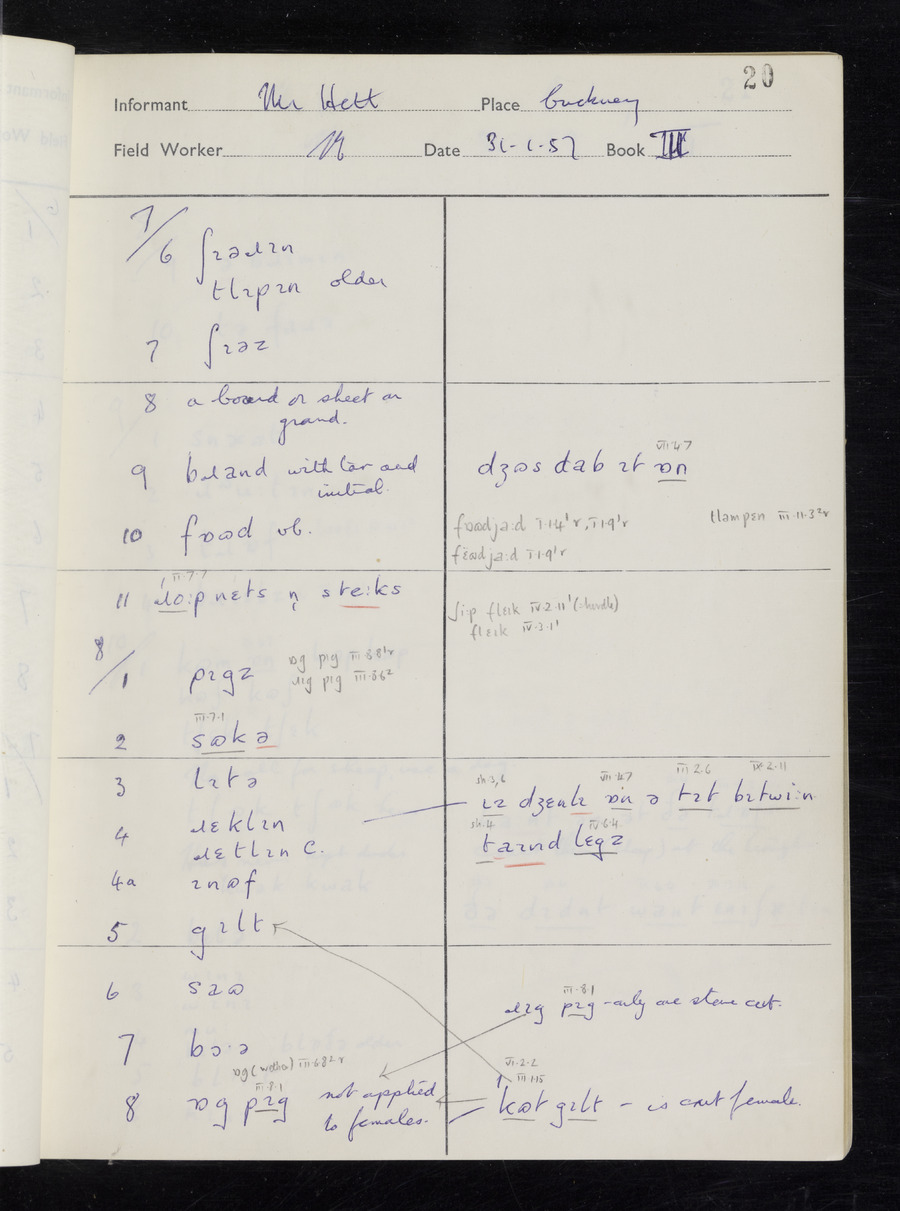 20
Informant Mr Hett Place
Field Worker Date 31-1-57 Book III
7/6 ʃɪəɹɪn
tlɪpɪn older
7 ʃɪəz
8 a board or sheet on
ground.
9 bɹand with tar and
initial.
dʒɷs dab ɪt ɒn
VII·4·7
10 fɒɷd vb.
fɒɷdja:d I·1·4'r, I·1·9'r
tlampen III·11·3²r
fɛɷdja:d I·1·9'r
11 ɹɷ:p nɛts n̩ stɛ:ks
II·7·7
ʃi:p flɛɪk IV·2·11' (=hurdle)
flɛɪk IV·3·1'
8/1 pɪgz
ɒg pɪg III·8·8'r
ɹɪg pɪg III·8·6²
2 sɷkə
III·7·1
3 lɪtə
4 ɹɛklɪn
ɹɛtlɪn C.
sh.3,6 VII·4·7 III·2·6 IX·2·11
ɒn ə tɪt bɪtwi:n
sh.4 IV·6·4
lɛgz
4a ɪnɷf
5 gɪlt
6 sɪɷ
ɹɪg pɪg - only one stone cut.
III·8·1
7 bɔ·ə
8 ɒg pɪg not applied
to females.
III·8·1
kɷt gɪlt - is cut female.
VI·2·2
III·1·15